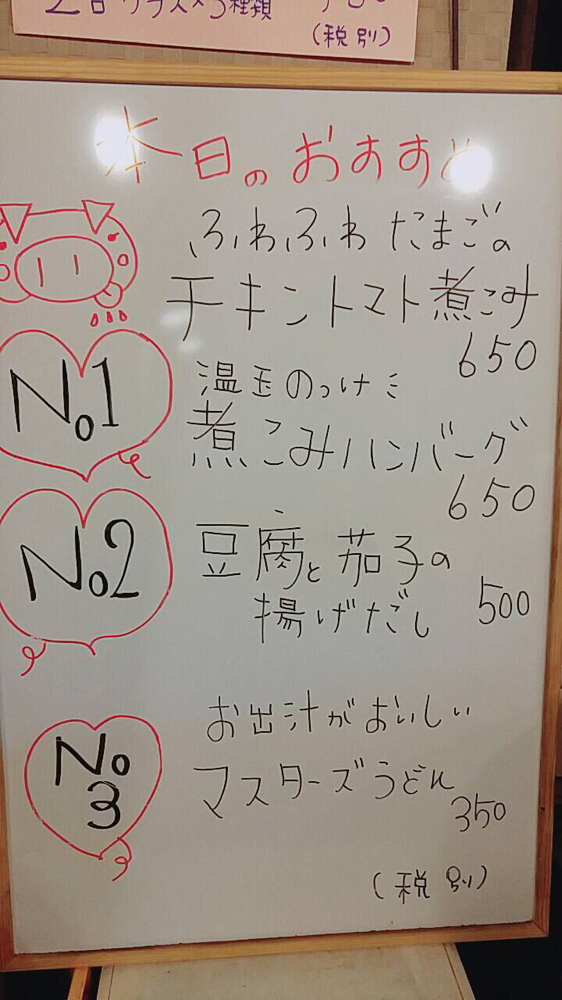 2日 グラス×3種類
(税別)
本日のおすすめ
ふわふわたまごの
チキントマト煮こみ
650
No1
温玉のっけミ
煮こみハンバーグ
650
No2
豆腐と茄子の
揚げだし
500
お出汁がおいしい
No
3
マスターズうどん
350
(税別)